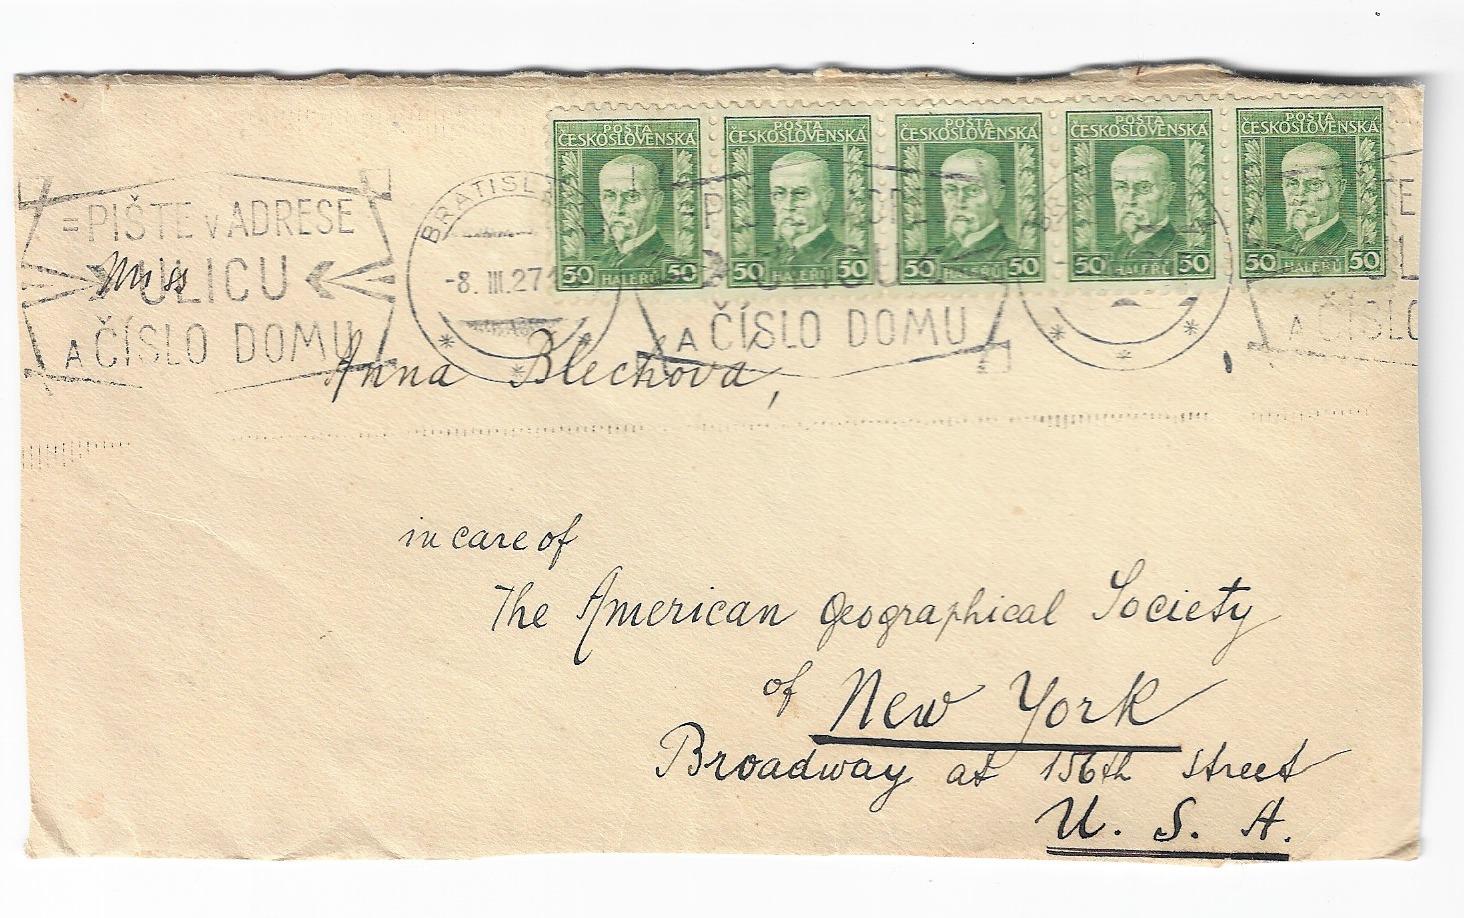 POŠTA POŠTA POŠTA POŠTA POŠTA
ČESKOSLOVENSKÁ ČESKOSLOVENSKÁ ČESKOSLOVENSKÁ ČESKOSLOVENSKÁ ČESKOSLOVENSKÁ
50 HALÉŘŮ 50 50 HALÉŘŮ 50 50 HALÉŘŮ 50 50 HALÉŘŮ 50 50 HALÉŘŮ 50
=PIŠTE V ADRESE
ULICU
A ČÍSLO DOMU
BRATISL
-8. III. 27
A ČÍSLO DOMU
A ČÍSLO
Miss
Anna Blechová,
in care of
The American Geographical Society
of New York
Broadway at 156th street
U. S. A.